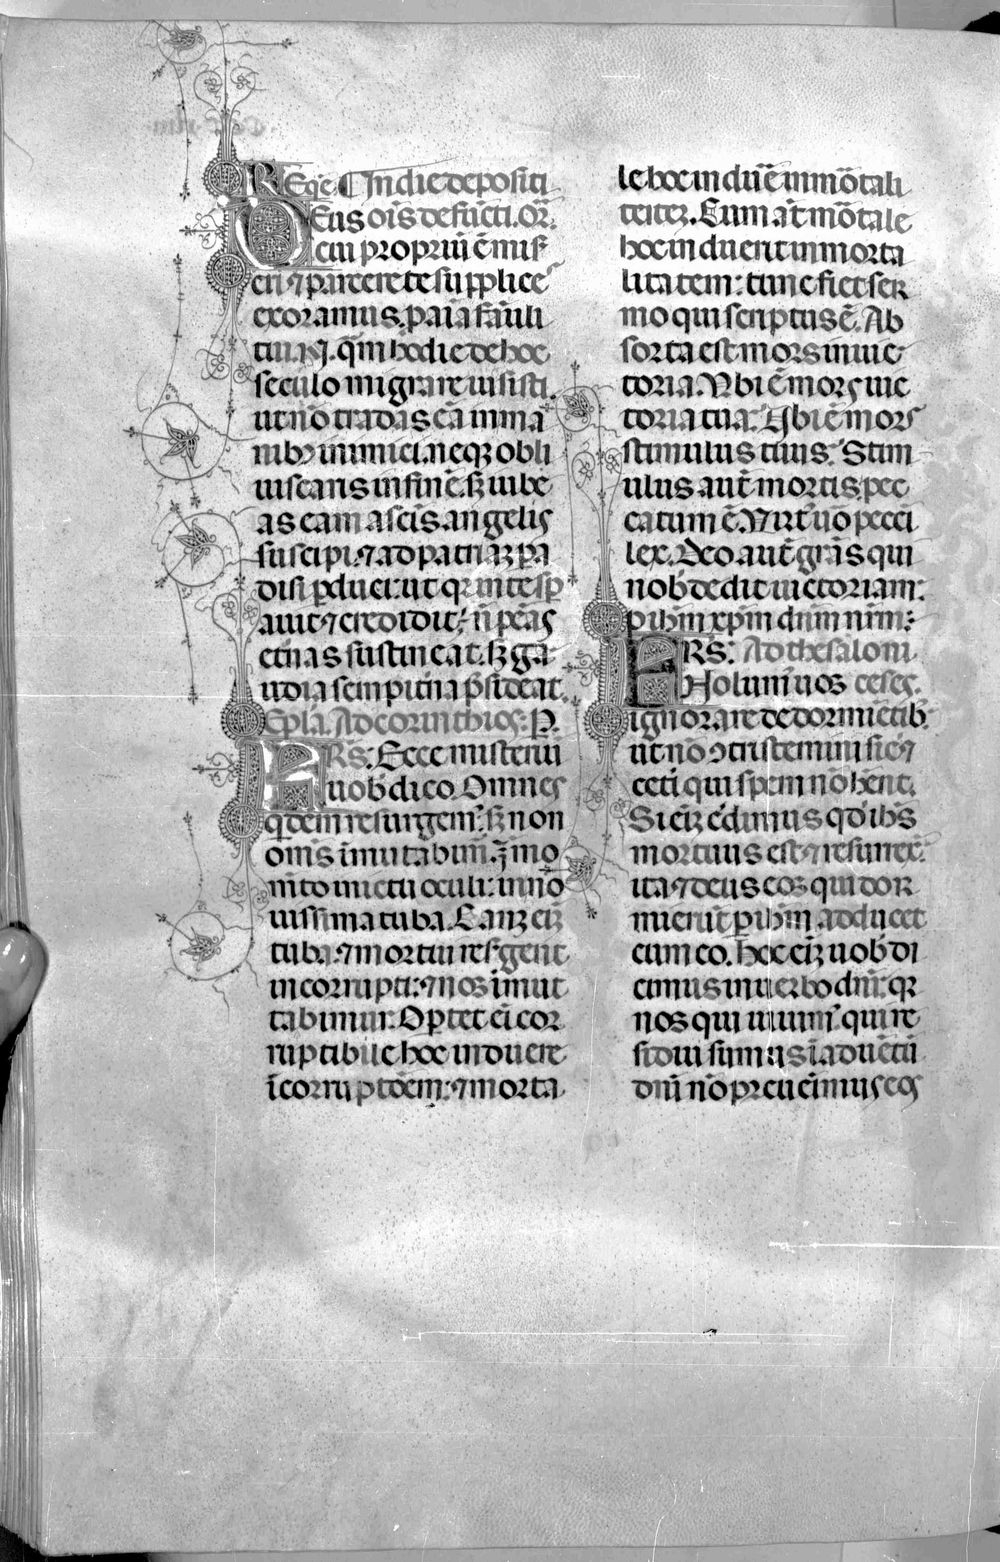 REq̄e. In die depositi
DEus oīs defūcti. or̄.
cui propriū ē mis̄
eri ⁊ parcere te supplice
exoramus. p aīa famuli
tui .N. q̄m hodie de hoc
seculo migrare iussisti.
ut nō tradas eā in ma
nibꝫ inimici. neqꝫ obli
uiscaris in finē. sꝫ iube
as eam a scīs angelis
suscipi. ⁊ ad patriaꝫ pa
disi pduci. ut qꝛ in te sp
auit ⁊ credidit. nō penas
etnas sustineat. sꝫ ga
udia sempitna psideat.
Epla. Ad corinthios. p.
FRS: Ecce misteriū
uob dico. Omnes
qdem resurgem̄. sꝫ non
omīs īmutabim̄. ī mo
mēto in ictu oculi. in no
uissima tuba. Canꝫ eīꝫ
tuba. ⁊ mortui resgent
incorrupti. ⁊ nos īmut
tabimur. Optet eī cor
ruptibile hoc induere
īcorruptōem. ⁊ morta
le hoc induē inmōtali
tatē. Cum aūt mōtale
hoc induerit inmorta
litatem: tunc fiet ser
mo qui scriptus ē. Ab
sorta est mors in uic
toria. Vbi ē mors uic
toria tua: Vbi ē mors
stimulus tuus. Stim
ulus aūt mortis pec
catum ē. Virt̄ uō pecci
lex. Deo aūt grās qui
nob dedit uictoriam:
p ihm xpm dnm nrm:
FRS: Ad thesaloni
Nolum̄ uos ceses.
ignorare de dormiētib.
ut nō ↄtristemini sic ⁊
ceti qui spem nō hēnt.
Si eīꝫ cdimus qd ihs
mortuus est ⁊ resurrex̄.
ita ⁊ deus eos qui dor
mierūt p ihm adducet
cum eo. Hoc eīꝫ uob di
cimus in uerbo dnī: qꝛ
nos qui uiuim̄ qui re
sidui sumus ī aduētū
dnī nō preueimus eos